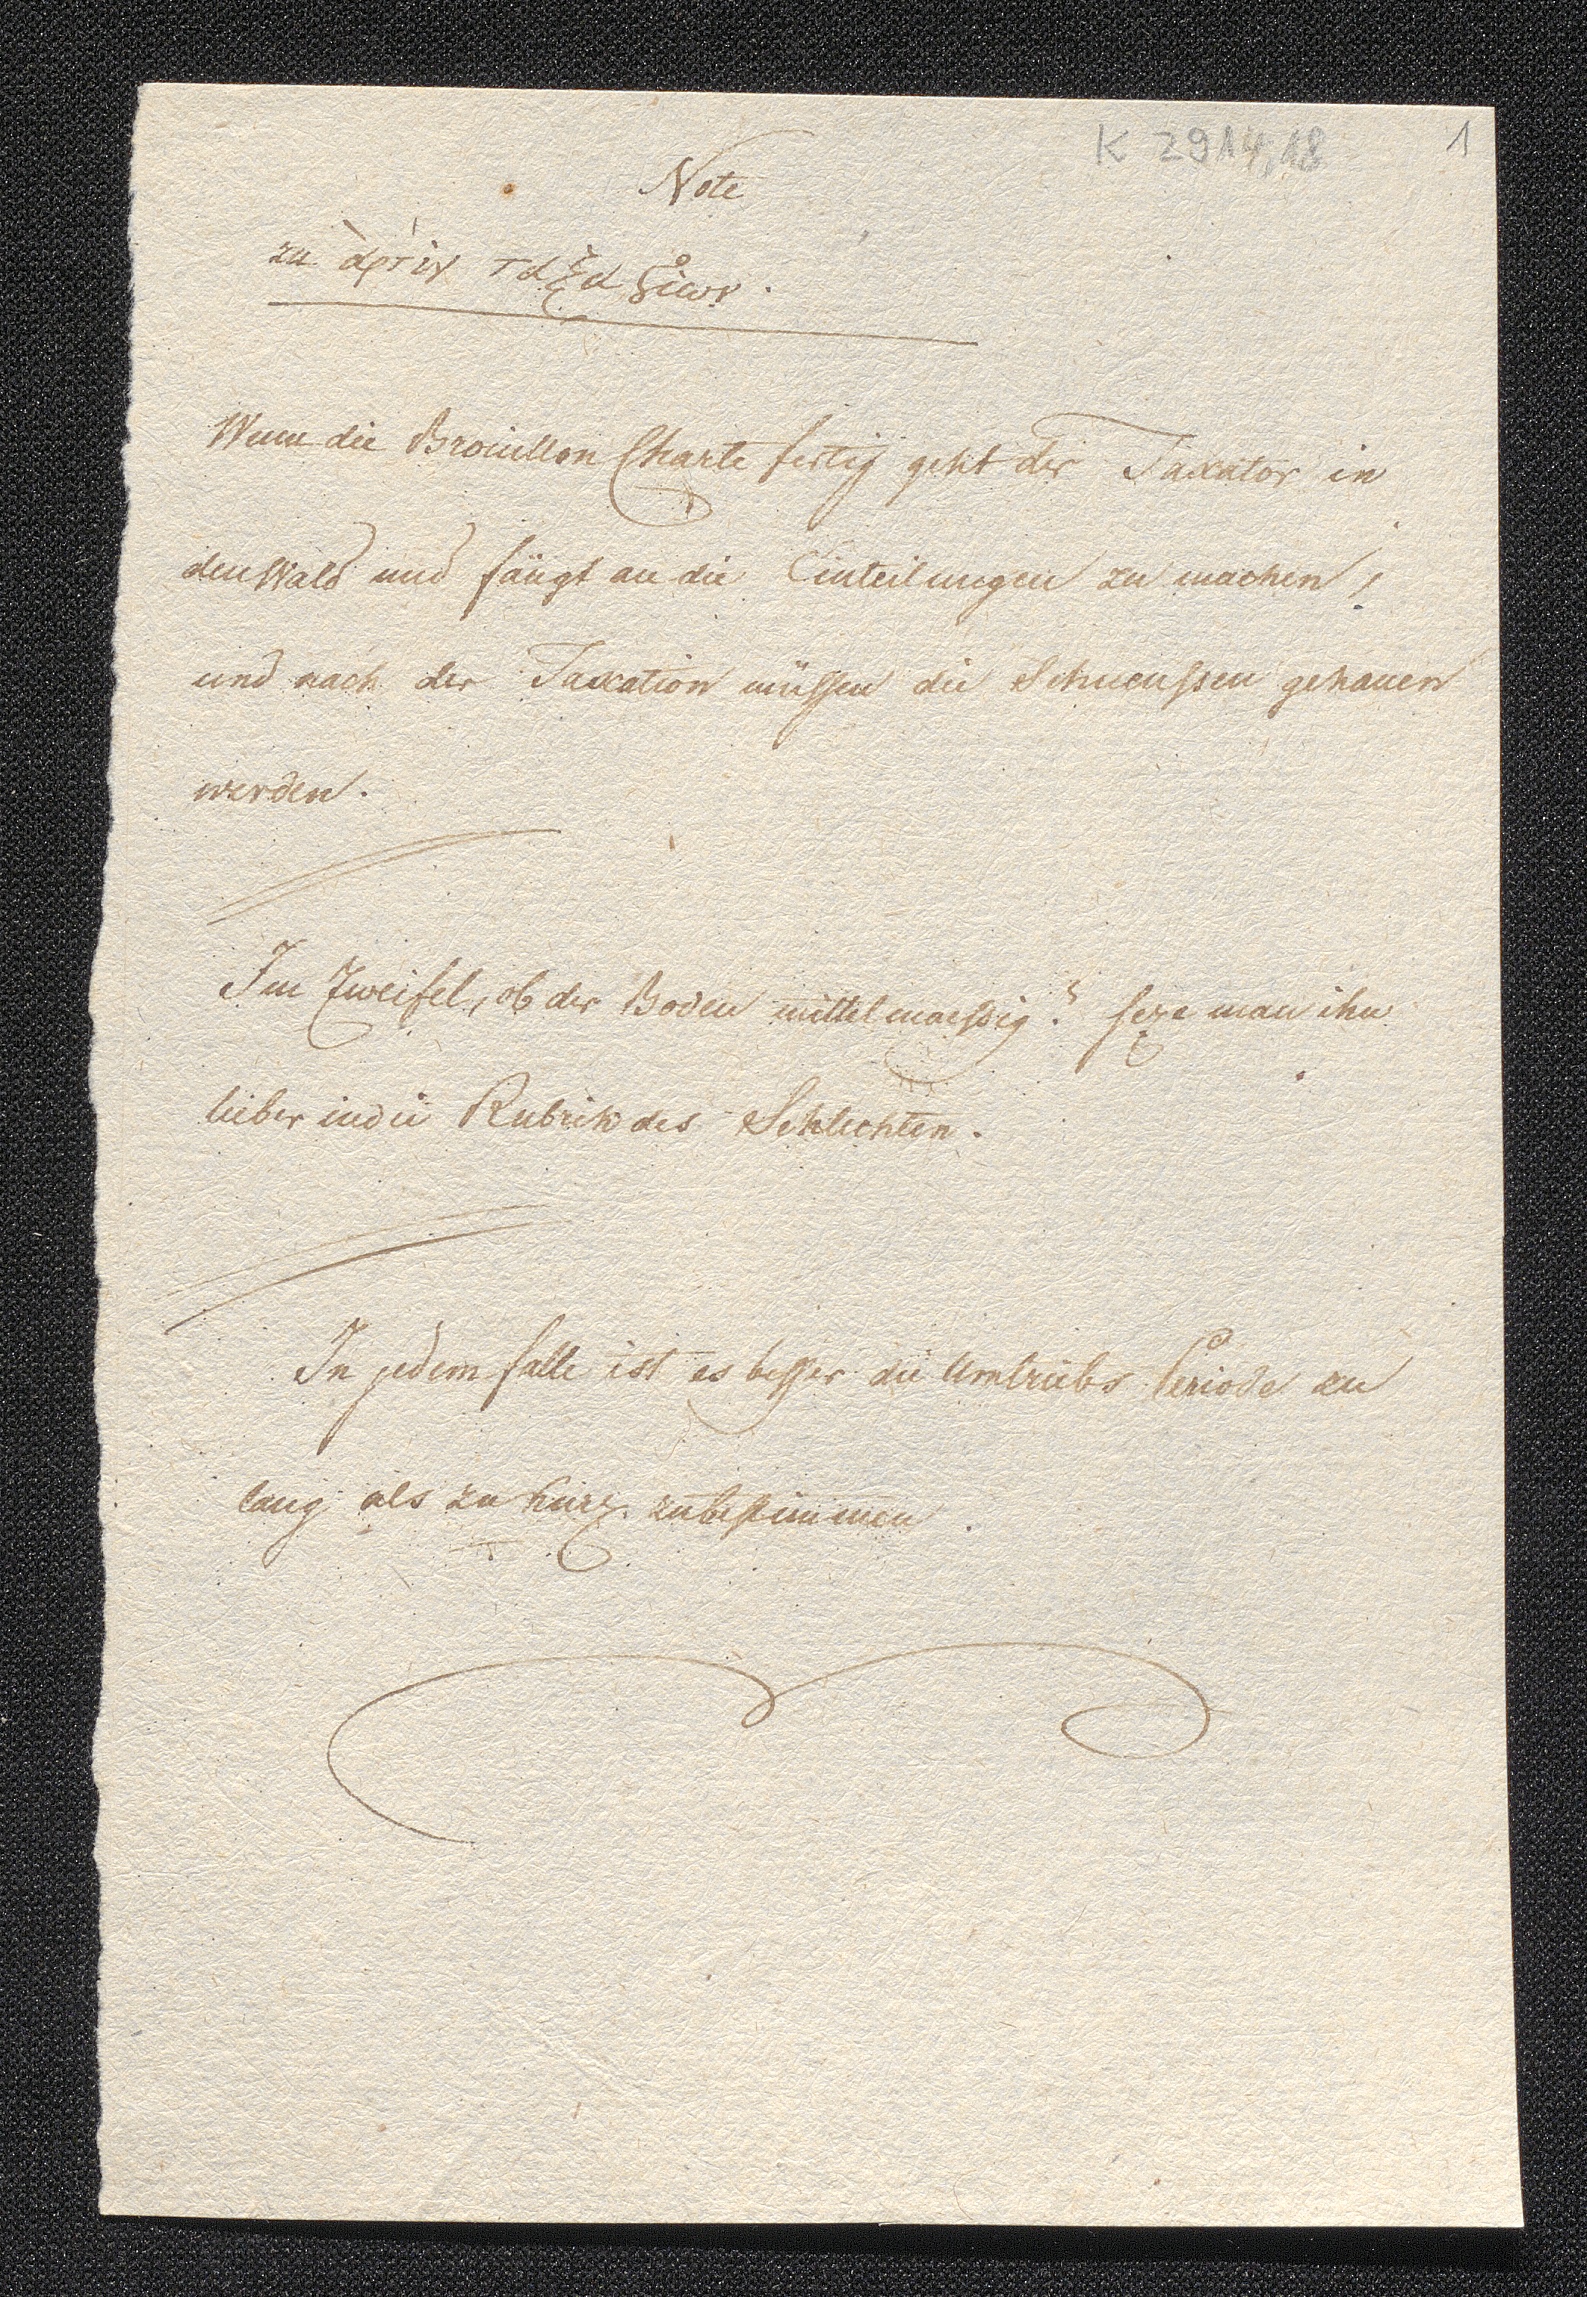 K 2914,18 1
Note
zu
Wenn die Brouillon Charte fertig geht der Taxator in
den Wald und fängt an die Einteilungen zu machen,
und nach der Taxation müssen die Schneussen gehauen
werden.
Im Zweifel, ob der Boden mittelmaessig? seze man ihn
lieber in die Rubrik des Schlechten.
In jedem falle ist es besser die Umtriebs Periode zu
lang als zu kurz zu bestimmen.